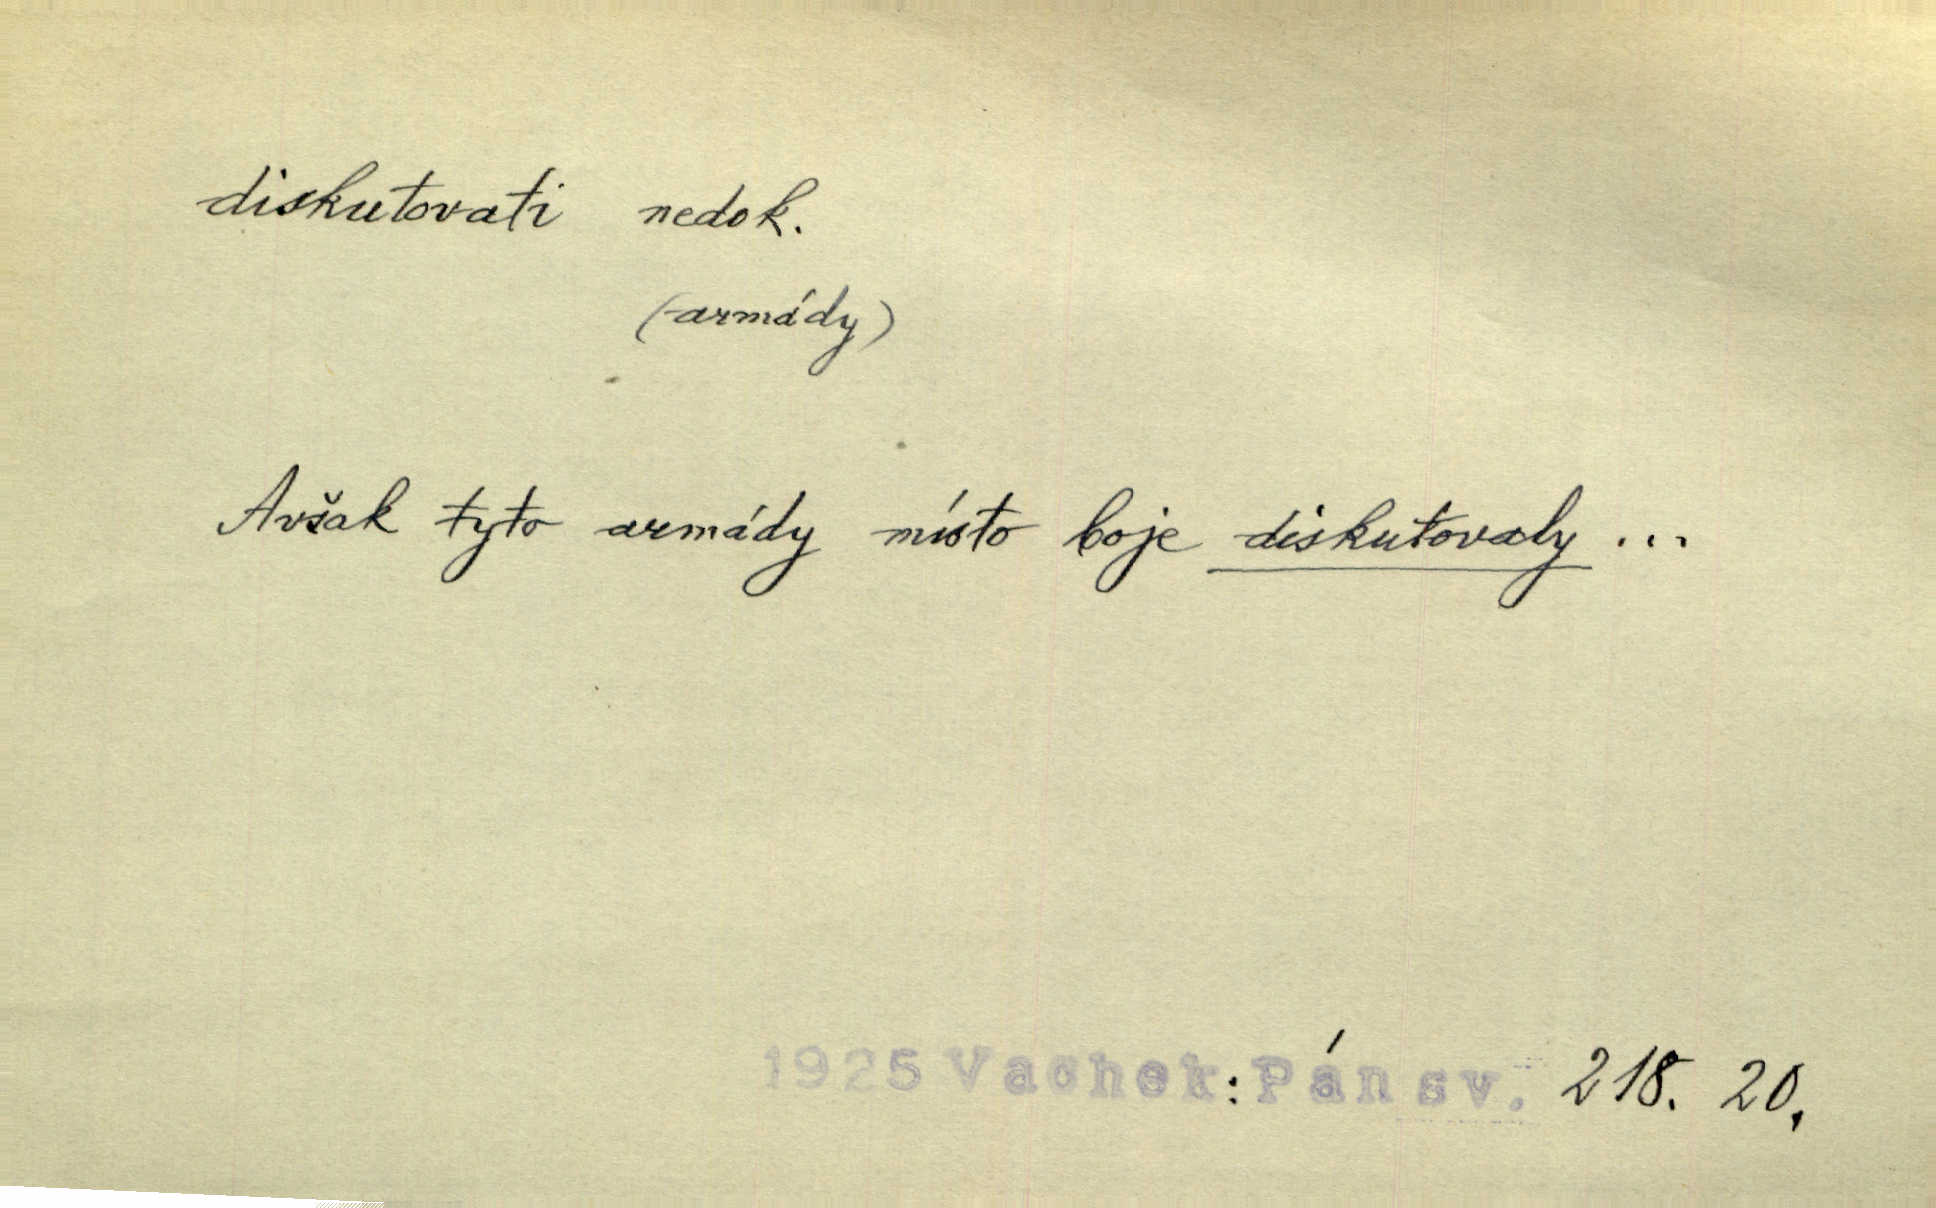 diskutovati nedok.
(armády)
Avšak tyto armády místo boje diskutovaly ...
1925 Vachek: Pán sv. 218. 20.